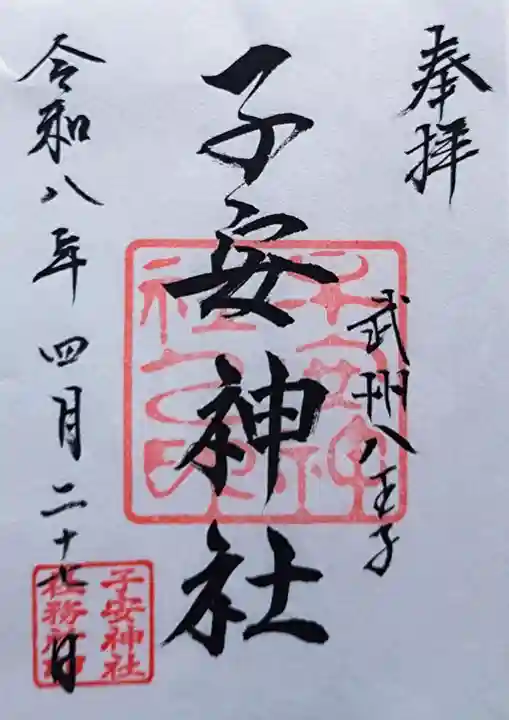 奉拝
武州八王子
子安神社
令和八年四月二十七日
子安神社
社務所印